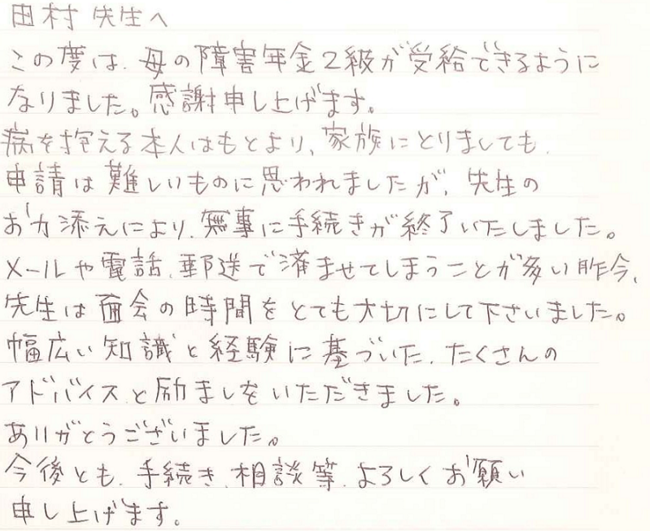 田村先生へ
この度は、母の障害年金2級が受給できるように
なりました。感謝申し上げます。
病を抱える本人はもとより、家族にとりましても、
申請は難しいものに思われましたが、先生の
お力添えにより、無事に手続きが終了いたしました。
メールや電話、郵送で済ませてしまうことが多い昨今、
先生は面会の時間をとても大切にして下さいました。
幅広い知識と経験に基づいた、たくさんの
アドバイスと励ましをいただきました。
ありがとうございました。
今後とも、手続き、相談等、よろしくお願い
申し上げます。